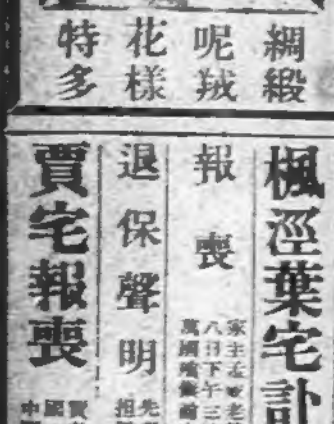 綢緞
呢羢
花樣
特多
楓涇葉宅訃
報喪
家主孟
八日下午三
萬國殯儀
退保聲明
先
担
賈宅報喪
賈
國
中